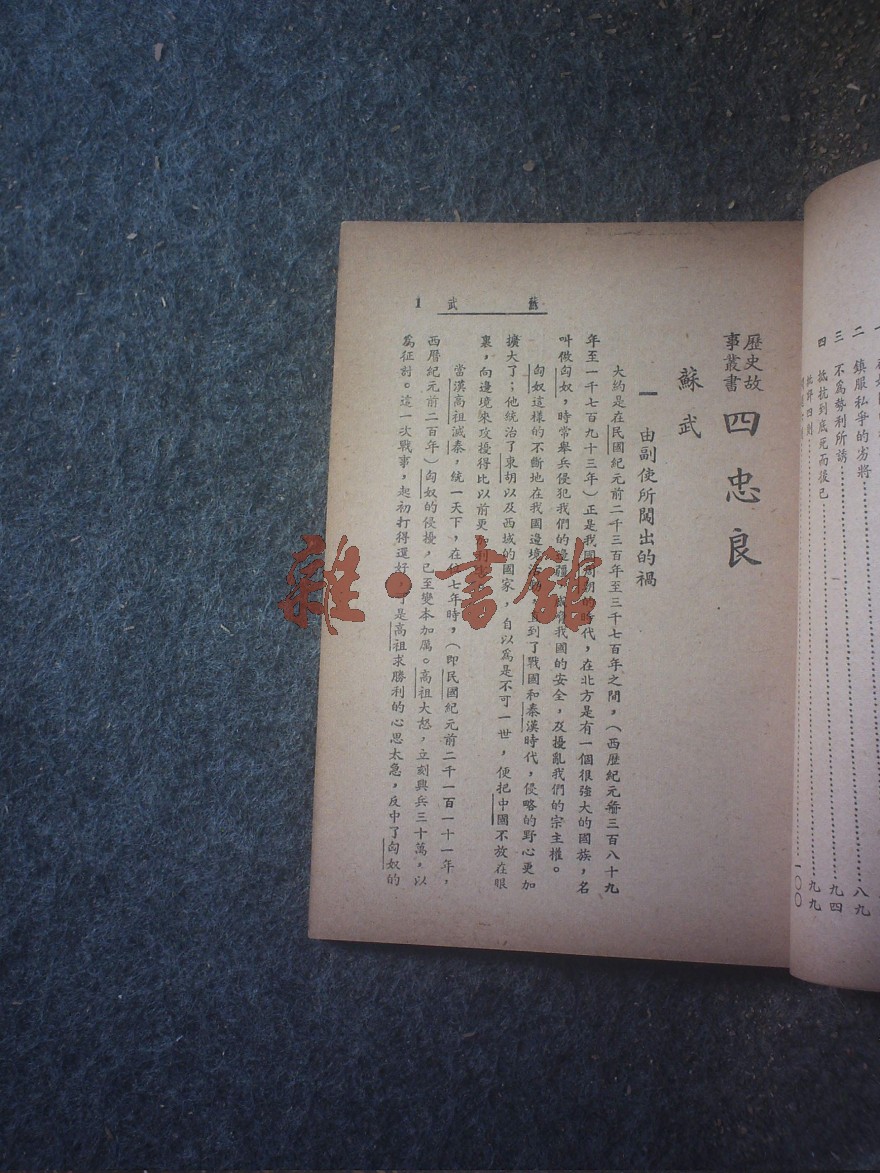 二 鎮服私爭的劣將……八九
三 不爲勢利所誘……九四
四 抵抗到底死而後已……九九
一〇〇
歷史故事叢書 四忠良
蘇武
一 由副使所闖出的禍
大約是在民國紀元前二千三百年至三千七百年之間,(西歷紀元前三百八十九
年至一千七百九十三年)正是我國周朝的時代,在北方是有一個很強大的國族,名
叫做匈奴,時常舉兵侵犯我們的邊疆,我國的安全,及擾亂我們的宗主權。
匈奴這樣的不斷地在我國邊境活動,直到了戰國和秦漢時代,侵略的野心更加
擴大了;他統治了東胡以及西城的國家,自以爲是不可一世,便把中國不放在眼
裏,向邊境來攻擾得比以前更
當漢高祖滅秦,統一天下,在位七年時,(卽民國紀元前二千一百一十一年,
西曆紀元前二百年)匈奴的侵擾,已至變本加厲。高祖大怒,立刻興兵三十萬,以
爲征討。這一次戰事,起初打得還好,可是高祖求勝利的心思太急,反中了匈奴的
蘇武 1
雜·書館